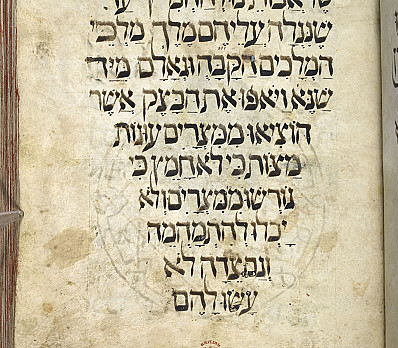 להחמיץ עד
שנגלה עליהם מלך מלכי
המלכים הקבה וגאלם מיד
שנא ויאפו את הבצק אשר
הוציאו ממצרים עגות
מצות כי לא חמץ כי
גורשו ממצרים ולא
יכלו להתמהמה
וגם צדה לא
עשו להם